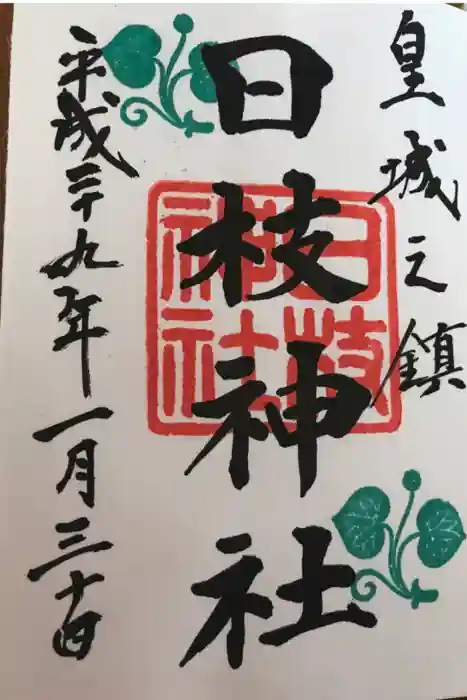 皇城之鎮
日枝神社
日枝神社
平成二十九年一月三十日